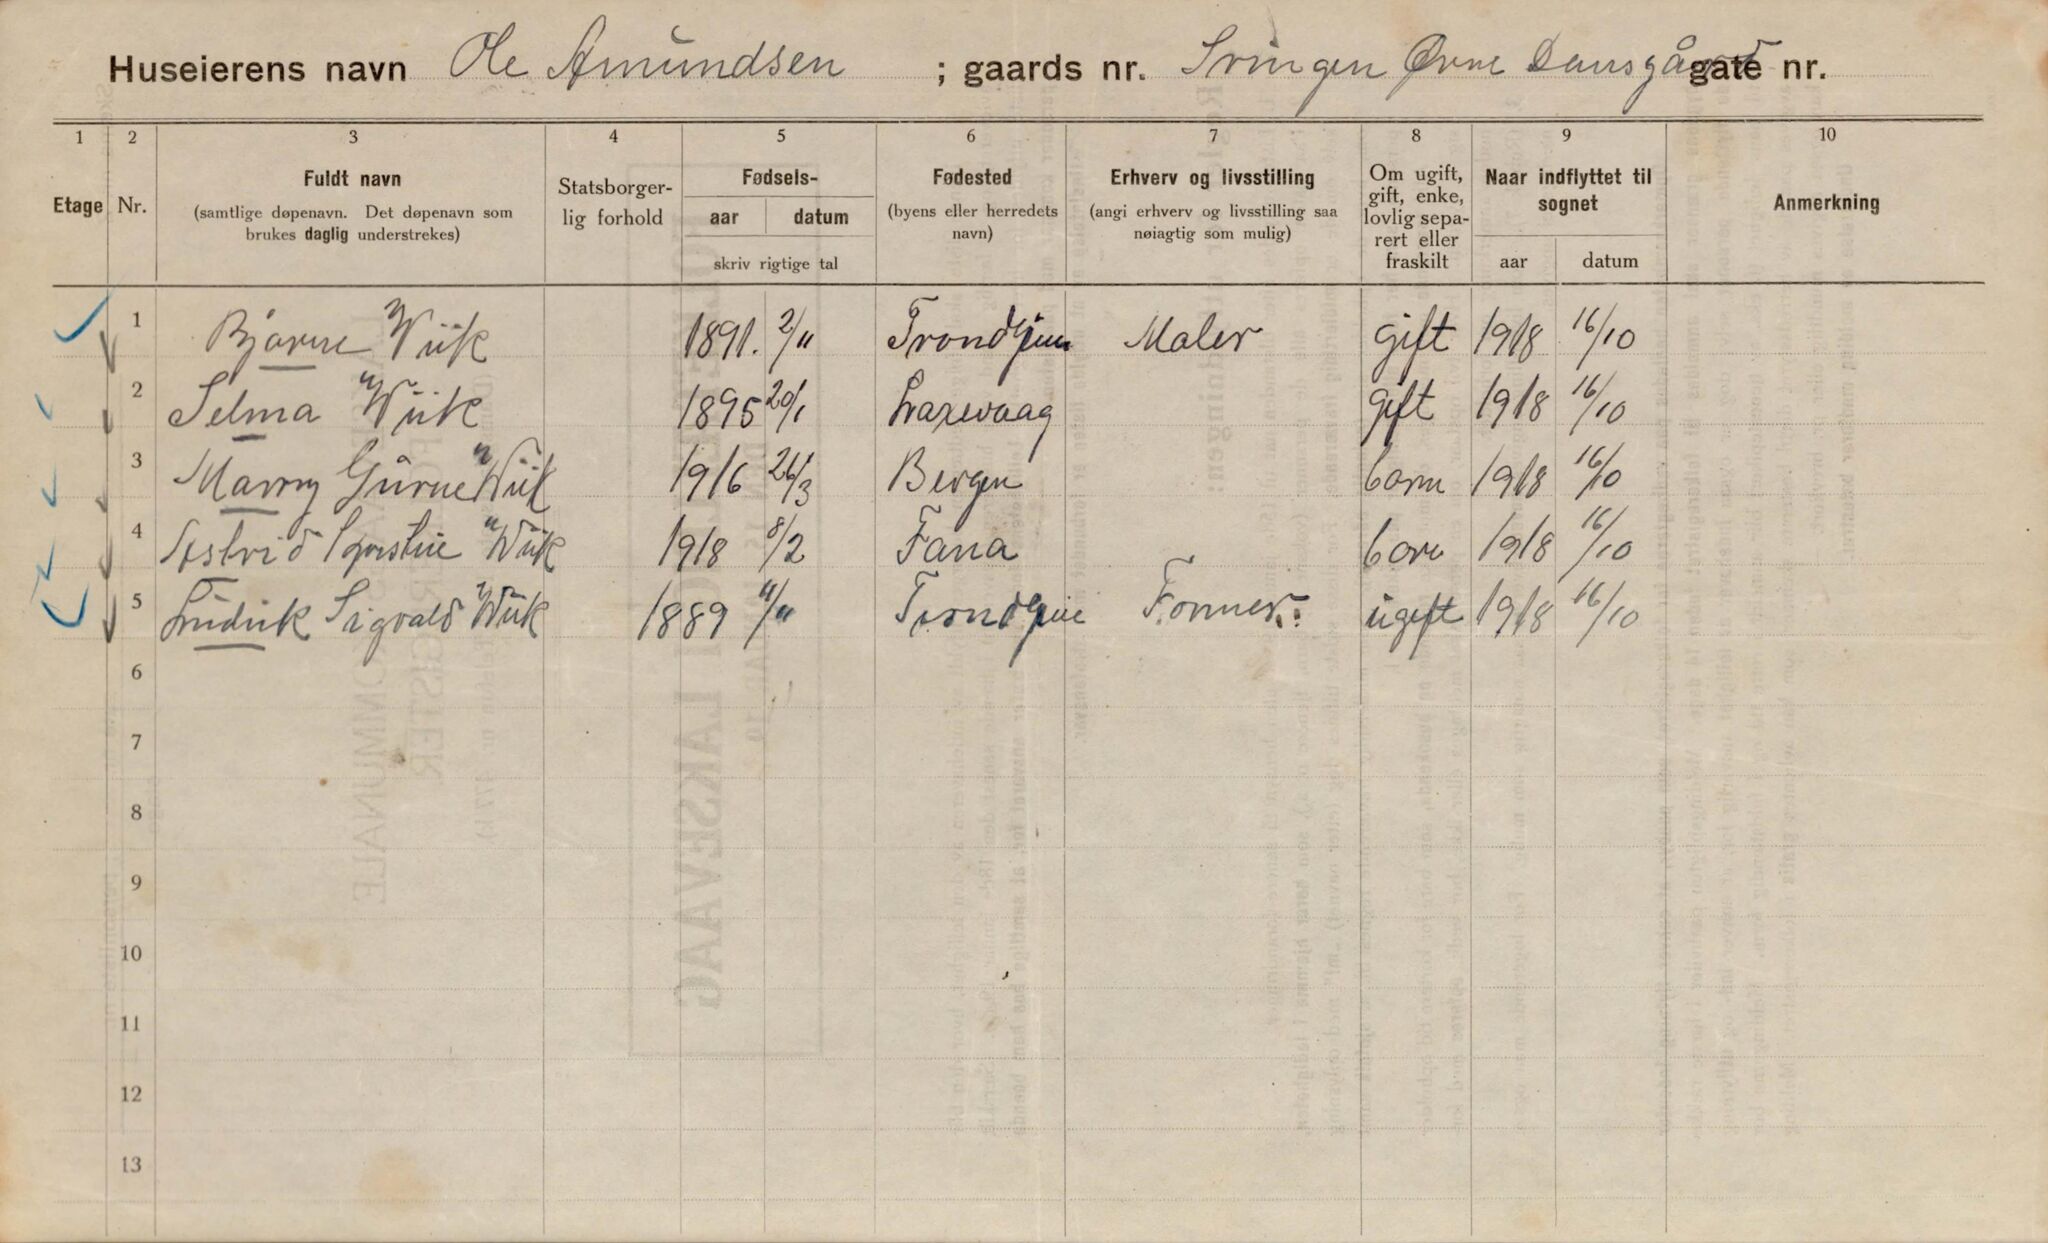 Huseierens navn Ole Amundsen ; gaards nr. Svingen Øvre Damsgård gate nr.
1 2 3 4 5 6 7 8 9 10
Etage Nr. Fuldt navn (samtlige døpenavn. Det døpenavn som brukes daglig understrekes) Statsborger-lig forhold Fødsels- aar datum skriv rigtige tal Fødested (byens eller herredets navn) Erhverv og livsstilling (angi erhverv og livsstilling saa nøiagtig som mulig) Om ugift, gift, enke, lovlig sepa-rert eller fraskilt Naar indflyttet til sognet aar datum Anmerkning
1 Bjarne Wiik 1891. 2/11 Trondhjem Maler gift 1918 16/10
2 Selma Wiik 1895 20/1 Laxevaag gift 1918 16/10
3 Marry Wiik 1916 26/3 Bergen barn 1918 16/10
4 Astrid Wiik 1918 8/2 Fana barn 1918 16/10
5 Ludvik Sigvald Wiik 1889 11/11 Trondhjem Former. ugift 1918 16/10
6
7
8
9
10
11
12
13